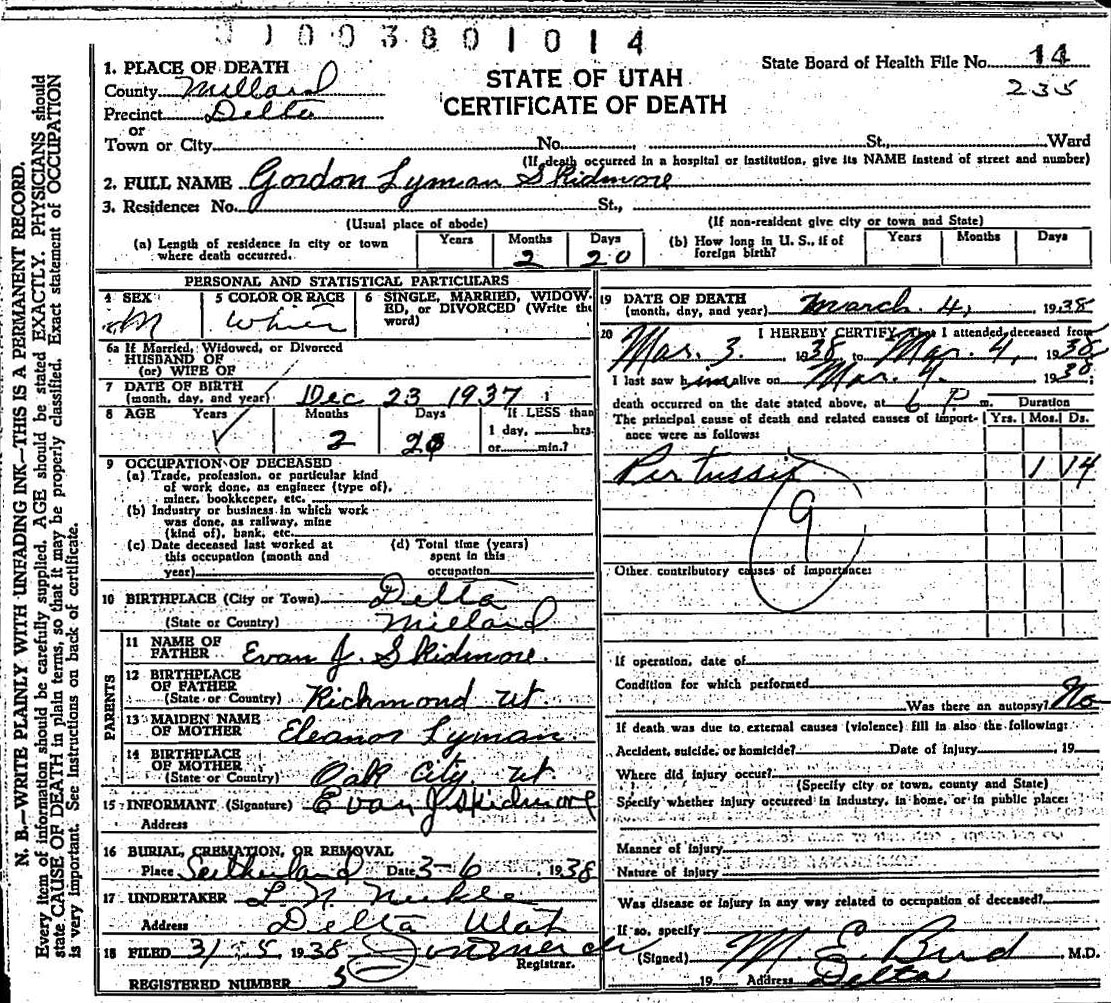 N. B.—WRITE PLAINLY WITH UNFADING INK—THIS IS A PERMANENT RECORD.
Every item of information should be carefully supplied. AGE should be stated EXACTLY. PHYSICIANS should
state CAUSE OF DEATH in plain terms, so that it may be properly classified. Exact statement of OCCUPATION
is very important. See instructions on back of certificate.
0 1 0 0 3 8 0 1 0 1 4
State Board of Health File No. 14
235
STATE OF UTAH
CERTIFICATE OF DEATH
1. PLACE OF DEATH
County Millard
Precinct Delta
or
Town or City No. St., Ward
(If death occurred in a hospital or institution, give its NAME instead of street and number)
2. FULL NAME Gordon Lyman Skidmore
3. Residence: No. St.,
(Usual place of abode) (If non-resident give city or town and State)
(a) Length of residence in city or town where death occurred. Years Months 2 Days 20
(b) How long in U. S., if of foreign birth? Years Months Days
PERSONAL AND STATISTICAL PARTICULARS
4 SEX M
5 COLOR OR RACE White
6 SINGLE, MARRIED, WIDOWED, or DIVORCED (Write the word)
6a If Married, Widowed, or Divorced
HUSBAND OF
(or) WIFE OF
7 DATE OF BIRTH
(month, day, and year) Dec 23 1937
8 AGE Years Months 2 Days If LESS than
1 day, hrs.
or min.?
9 OCCUPATION OF DECEASED
(a) Trade, profession, or particular kind
of work done, as engineer (type of),
miner, bookkeeper, etc.
(b) Industry or business in which work
was done, as railway, mine
(kind of), bank, etc.
(c) Date deceased last worked at
this occupation (month and
year)
(d) Total time (years)
spent in this
occupation
10 BIRTHPLACE (City or Town) Delta
(State or Country) Millard
PARENTS
11 NAME OF
FATHER Evan J. Skidmore.
12 BIRTHPLACE
OF FATHER
(State or Country) Richmond Ut
13 MAIDEN NAME
OF MOTHER Eleanor Lyman
14 BIRTHPLACE
OF MOTHER
(State or Country) Oak City, Ut
15 INFORMANT (Signature) Evan J Skidmore
Address
16 BURIAL, CREMATION, OR REMOVAL
Place Date 3-6 1938
17 UNDERTAKER
Address Delta Utah
18 FILED 1938
Registrar.
REGISTERED NUMBER
19 DATE OF DEATH
(month, day, and year) March 4, 1938
20 I HEREBY CERTIFY, That I attended deceased from
Mar. 3. 1938, to Mar. 4, 1938
I last saw him alive on Mar. 4. 1938;
death occurred on the date stated above, at 6 P. m.
The principal cause of death and related causes of importance were as follows:
Duration
Yrs. Mos. Ds.
Pertussis 1 14
9
Other contributory causes of importance:
If operation, date of
Condition for which performed
Was there an autopsy? No
If death was due to external causes (violence) fill in also the following:
Accident, suicide, or homicide? Date of injury 19
Where did injury occur?
(Specify city or town, county and State)
Specify whether injury occurred in industry, in home, or in public place:
Manner of injury
Nature of injury
Was disease or injury in any way related to occupation of deceased?
If so, specify
(Signed) M. E. Bird M.D.
19 Address Delta